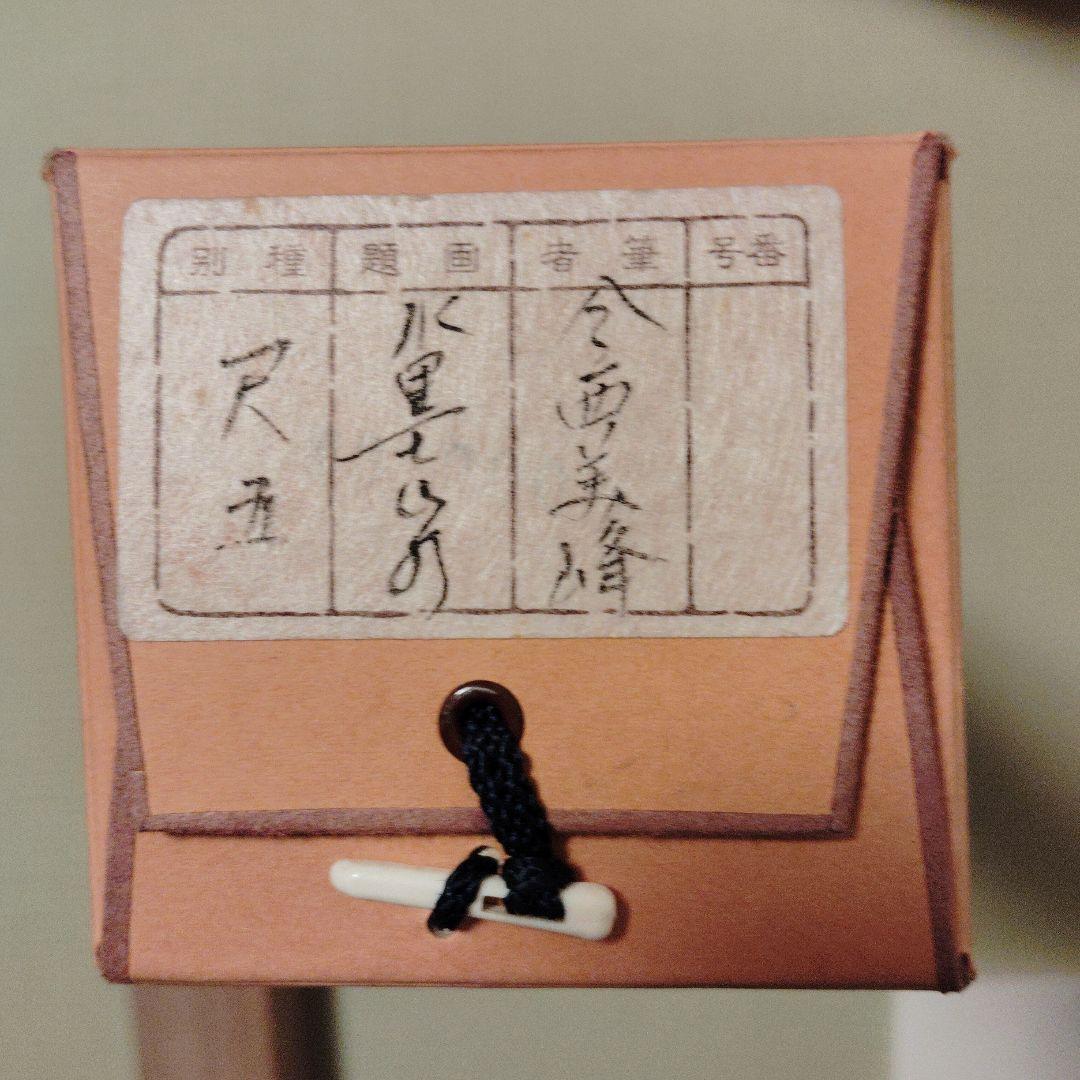 番号
筆者
今西美峰
画題
水墨山水
種別
尺五